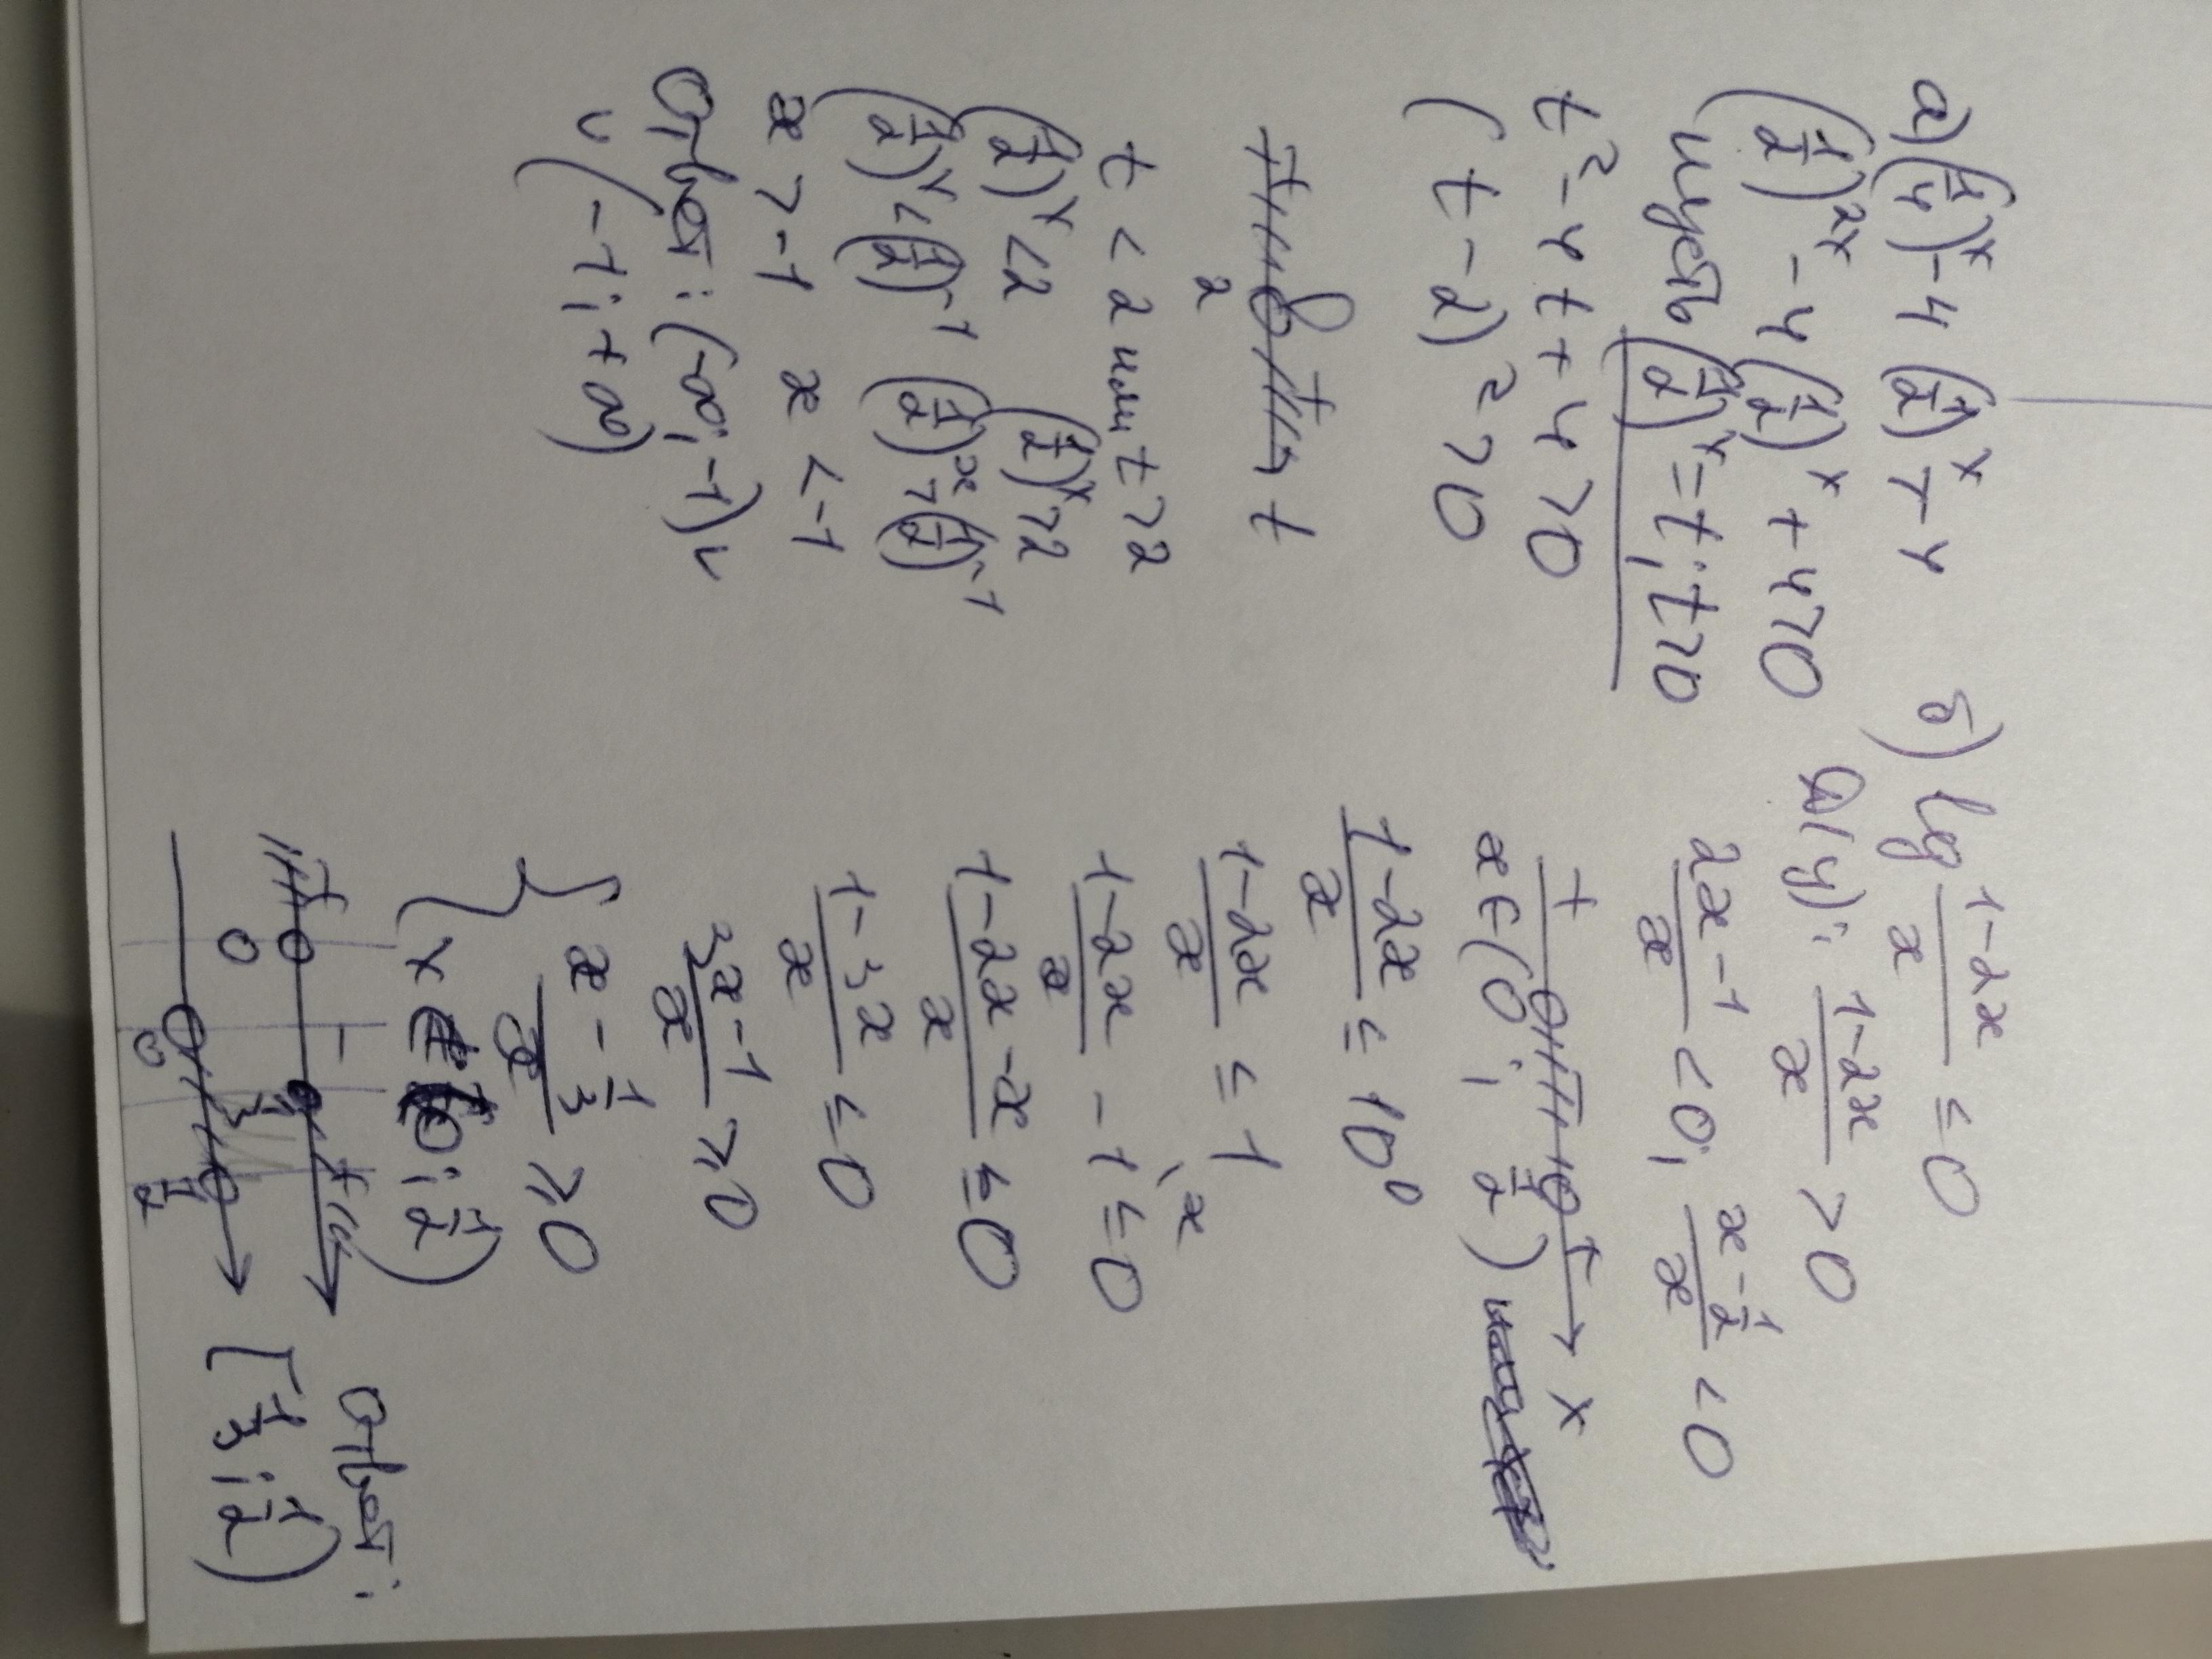 а) (1/4)^x - 4 (1/2)^x > -4
(1/2)^2x - 4 (1/2)^x + 4 > 0
пусть (1/2)^x = t; t > 0
t² - 4t + 4 > 0
(t - 2)² > 0
2 t
t < 2 или t > 2
(1/2)^x < 2 (1/2)^x > 2
(1/2)^x < (1/2)^-1 (1/2)^x > (1/2)^-1
x > -1 x < -1
Ответ: (-∞; -1) ∪
∪ (-1; +∞)
б) lg (1-2x)/x ≤ 0
О/у): (1-2x)/x > 0
(2x-1)/x < 0; (x - 1/2)/x < 0
+ 0 - + x
x ∈ (0; 1/2)
(1-2x)/x ≤ 10⁰
(1-2x)/x ≤ 1
(1-2x)/x - 1 ≤ 0
(1-2x-x)/x ≤ 0
(1-3x)/x ≤ 0
(3x-1)/x ≥ 0
{ (x - 1/3)/x ≥ 0
x ∈ (0; 1/2)
+ - +
0 1/3
0 1/2
Ответ:
[1/3; 1/2)